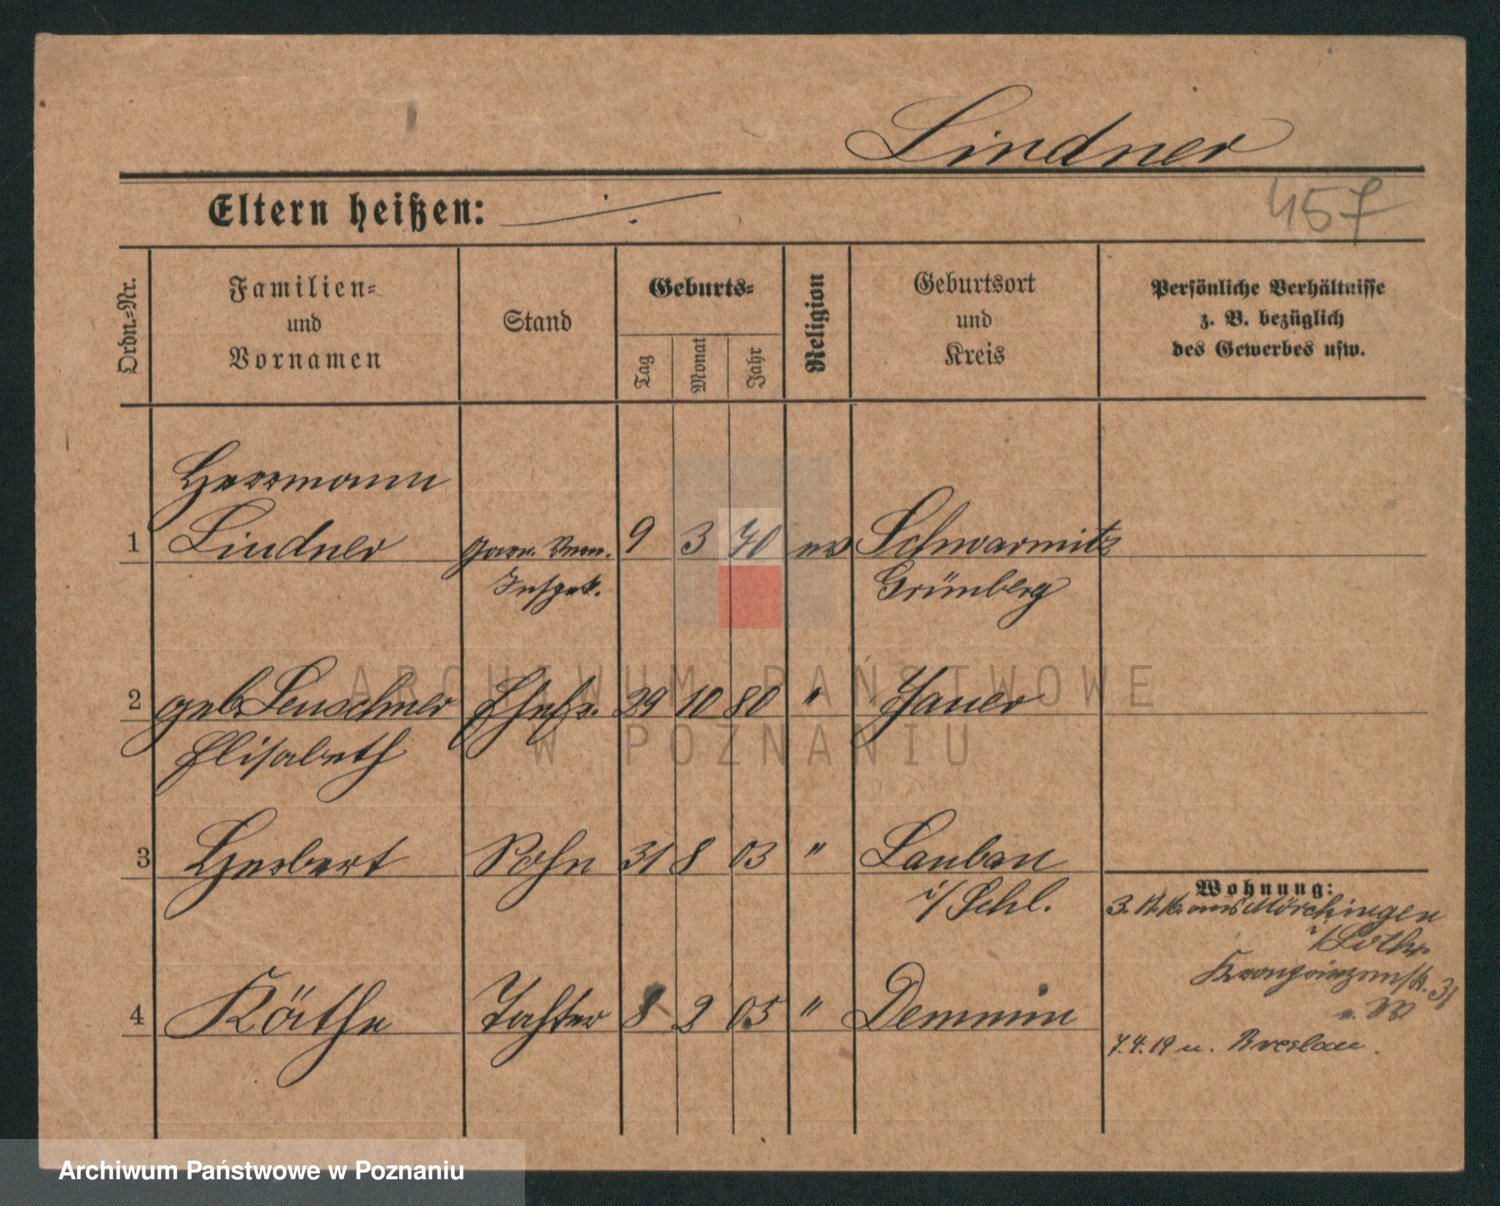 Lindner
457
Eltern heißen: ./.
Ordn.-Nr.
Familien- und Vornamen
Stand
Geburts-
Tag
Monat
Jahr
Religion
Geburtsort und Kreis
Persönliche Verhältnisse
z. B. bezüglich
des Gewerbes usw.
Herrmann
1 Lindner Garn. Verw. 9 3 70 ev Schwarmitz
Inspekt. Grünberg
2 geb. Leuschner Ehefr. 29 10 80 " Jauer
Elisabeth
3 Herbert Sohn 31 8 03 " Lauban
i/Schl.
Wohnung:
3. aus Mörchingen
i/Lothr.
Kronprinzenstr. 31
4 Käthe Tochter 8 2 05 " Demmin
7.4.19 n. Breslau.
ARCHIWUM PAŃSTWOWE
W POZNANIU
Archiwum Państwowe w Poznaniu